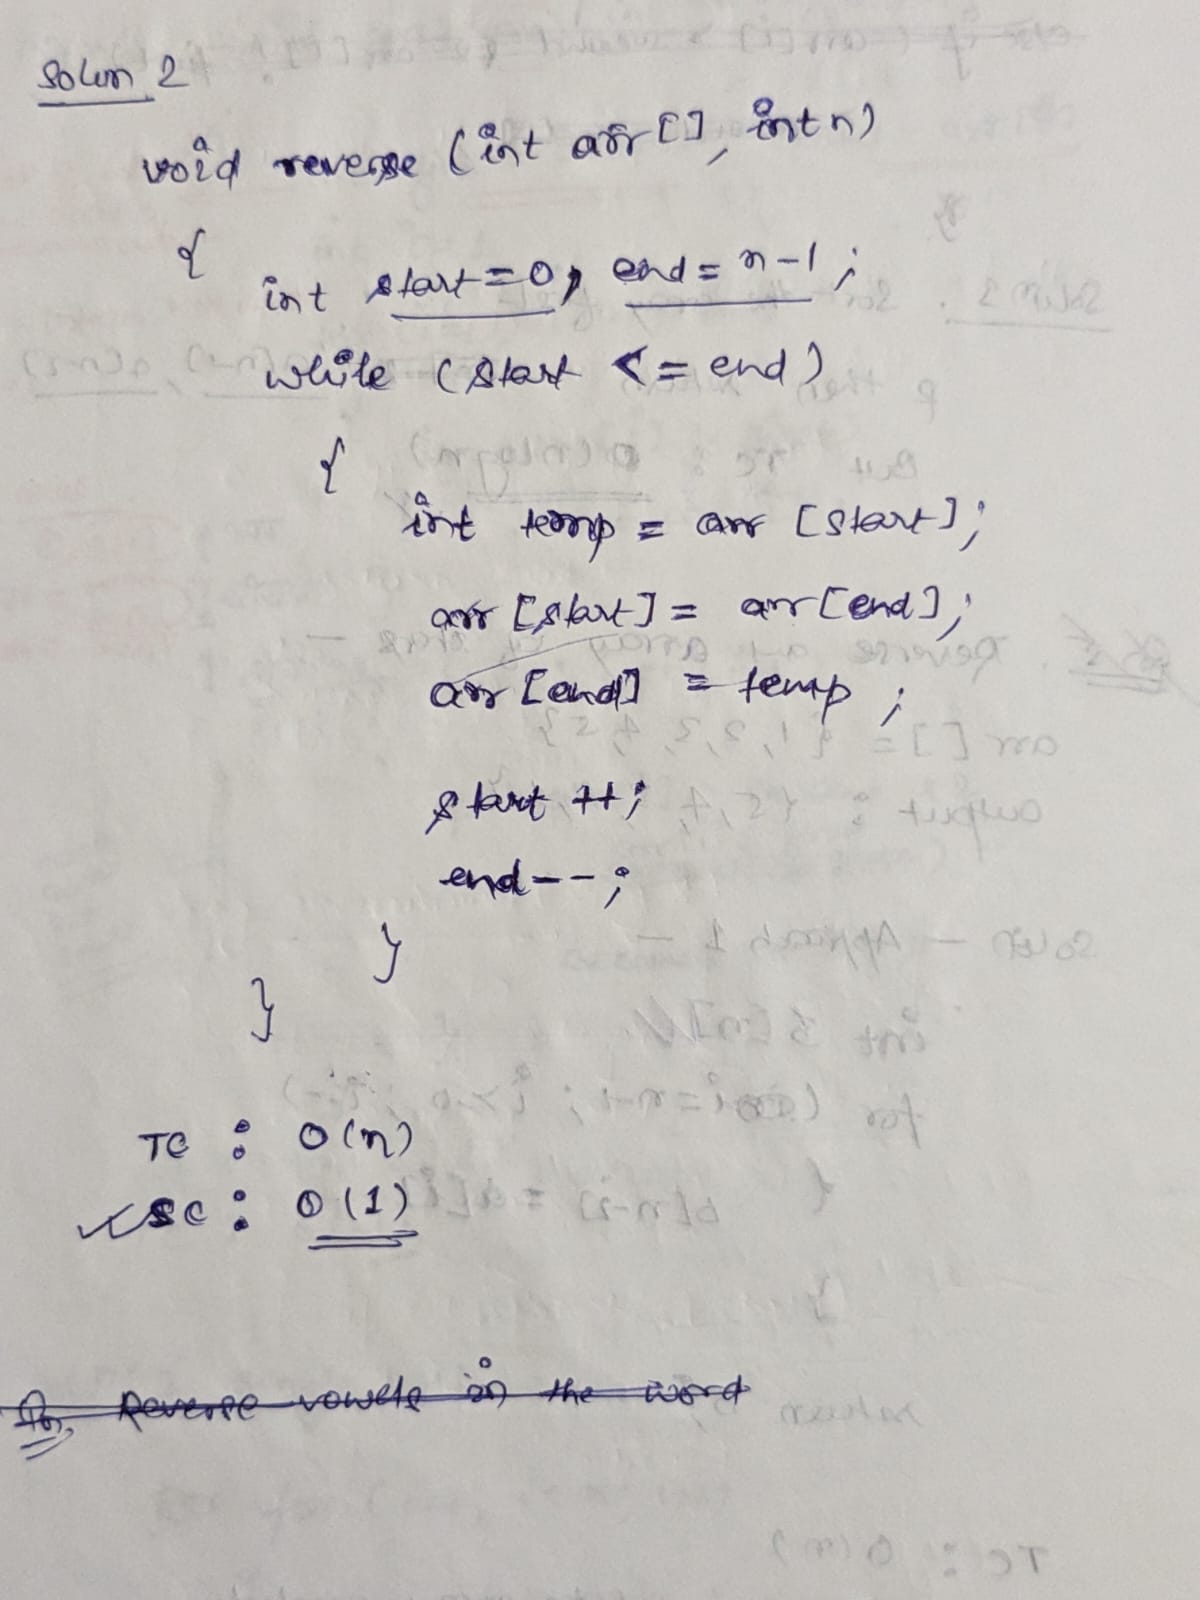 Solun 2
void reverse (int arr [], int n)
{
int start = 0, end = n-1;
while (start <= end)
{
int temp = arr [start];
arr [start] = arr [end];
arr [end] = temp;
start ++;
end--;
}
}
TC : O(n)
SC : O(1)
Reverse vowels in the word